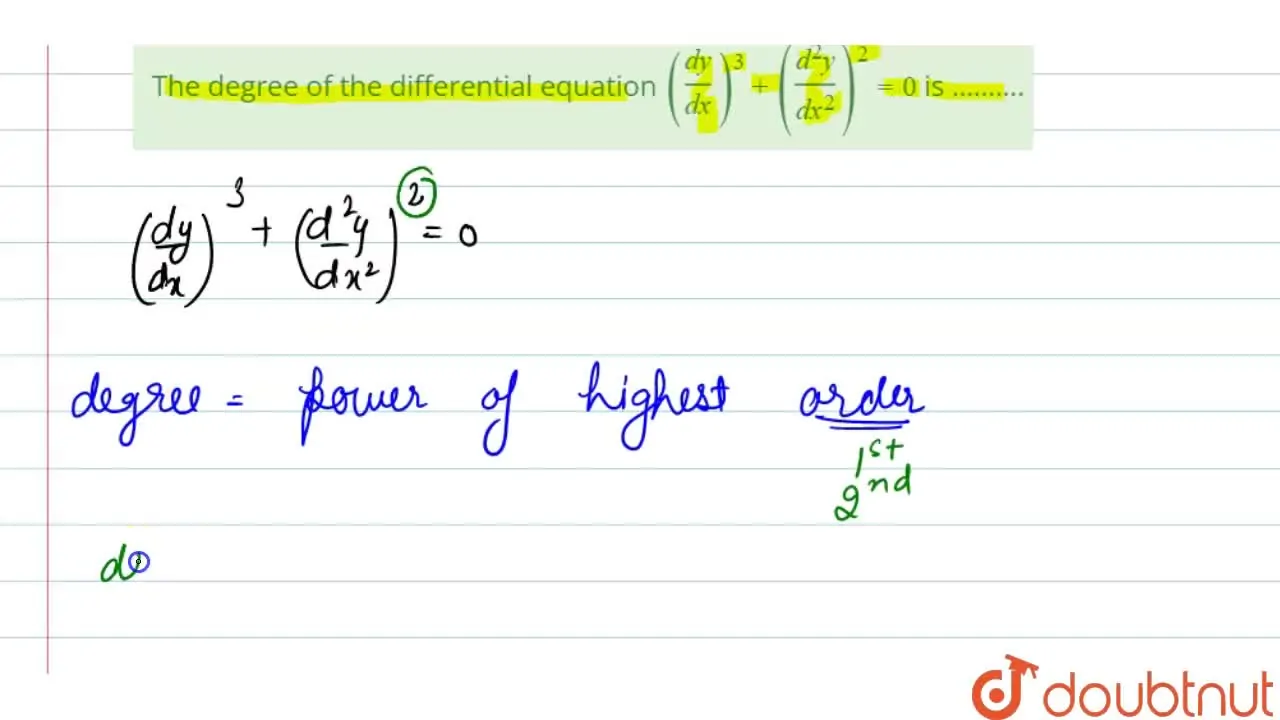 The degree of the differential equation (dy/dx)³ + (d²y/dx²)² = 0 is ..........
(dy/dx)³ + (d²y/dx²)² = 0
degree = power of highest order
1st
2nd
de
doubtnut